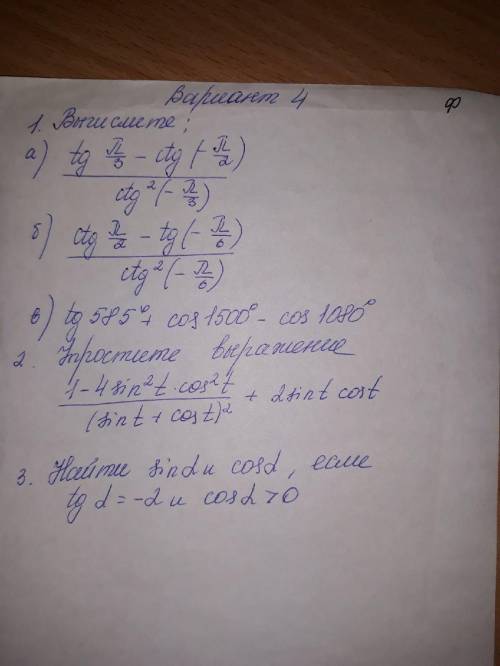 Вариант 4
ф
1. Вычислите:
а) (tg π/3 − ctg (−π/2)) / (ctg² (−π/3))
б) (ctg π/2 − tg (−π/6)) / (ctg² (−π/6))
в) tg 585° + cos 1500° − cos 1080°
2. Упростите выражение
(1 − 4 sin² t · cos² t) / (sin t + cos t)² + 2 sin t cos t
3. Найти sin α и cos α, если
tg α = −2 и cos α > 0